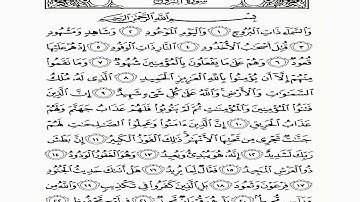 سورة البروج
بسم الله الرحمن الرحيم
والسماء ذات البروج ١ واليوم الموعود ٢ وشاهد ومشهود
٣ قتل أصحاب الأخدود ٤ النار ذات الوقود ٥ إذ هم عليها
قعود ٦ وهم على ما يفعلون بالمؤمنين شهود ٧ وما نقموا
منهم إلا أن يؤمنوا بالله العزيز الحميد ٨ الذي له ملك
السماوات والأرض والله على كل شيء شهيد ٩ إن الذين
فتنوا المؤمنين والمؤمنات ثم لم يتوبوا فلهم عذاب جهنم ولهم
عذاب الحريق ١٠ إن الذين آمنوا وعملوا الصالحات لهم
جنات تجري من تحتها الأنهار ذلك الفوز الكبير ١١ إن بطش
ربك لشديد ١٢ إنه هو يبدئ ويعيد ١٣ وهو الغفور الودود ١٤
ذو العرش المجيد ١٥ فعال لما يريد ١٦ هل أتاك حديث الجنود
١٧ فرعون وثمود ١٨ بل الذين كفروا في تكذيب ١٩ والله من